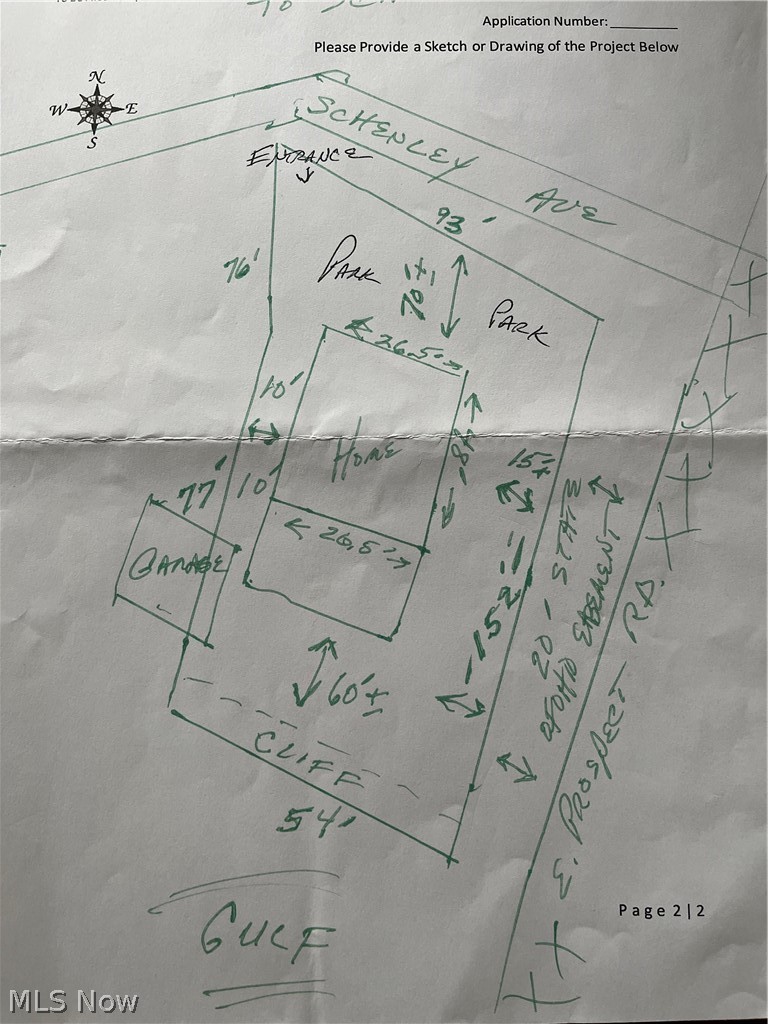 Application Number:
Please Provide a Sketch or Drawing of the Project Below
N
W E
S
SCHENLEY AVE
ENTRANCE
93'
76'
PARK
70'±
PARK
26.5'
10'
HOME
48'
15'±
77'
10'
26.5'
GARAGE
152'
20' STATE
OF OHIO EASEMENT
E. PROSPECT RD.
60'±
CLIFF
54'
GULF
Page 2|2
MLS Now